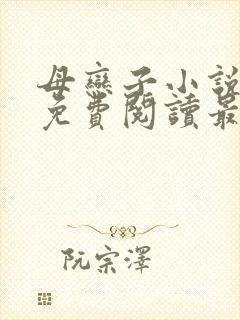 母戀子小說
免費閱讀最
阮宗澤